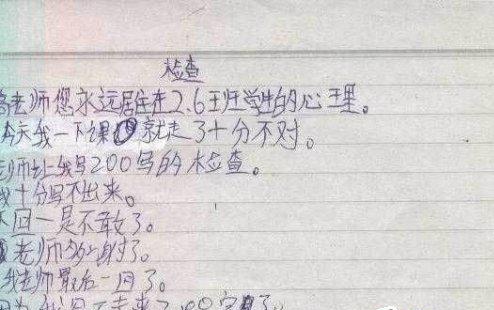 检查
老师您永远居住在2.6班班学生的心理。
今天我一下课就走了十分不对。
老师让我写200写的检查。
我十分写不出来。
下回一是不敢了。
老师多谢了。
我老师最后一回了。
因为我